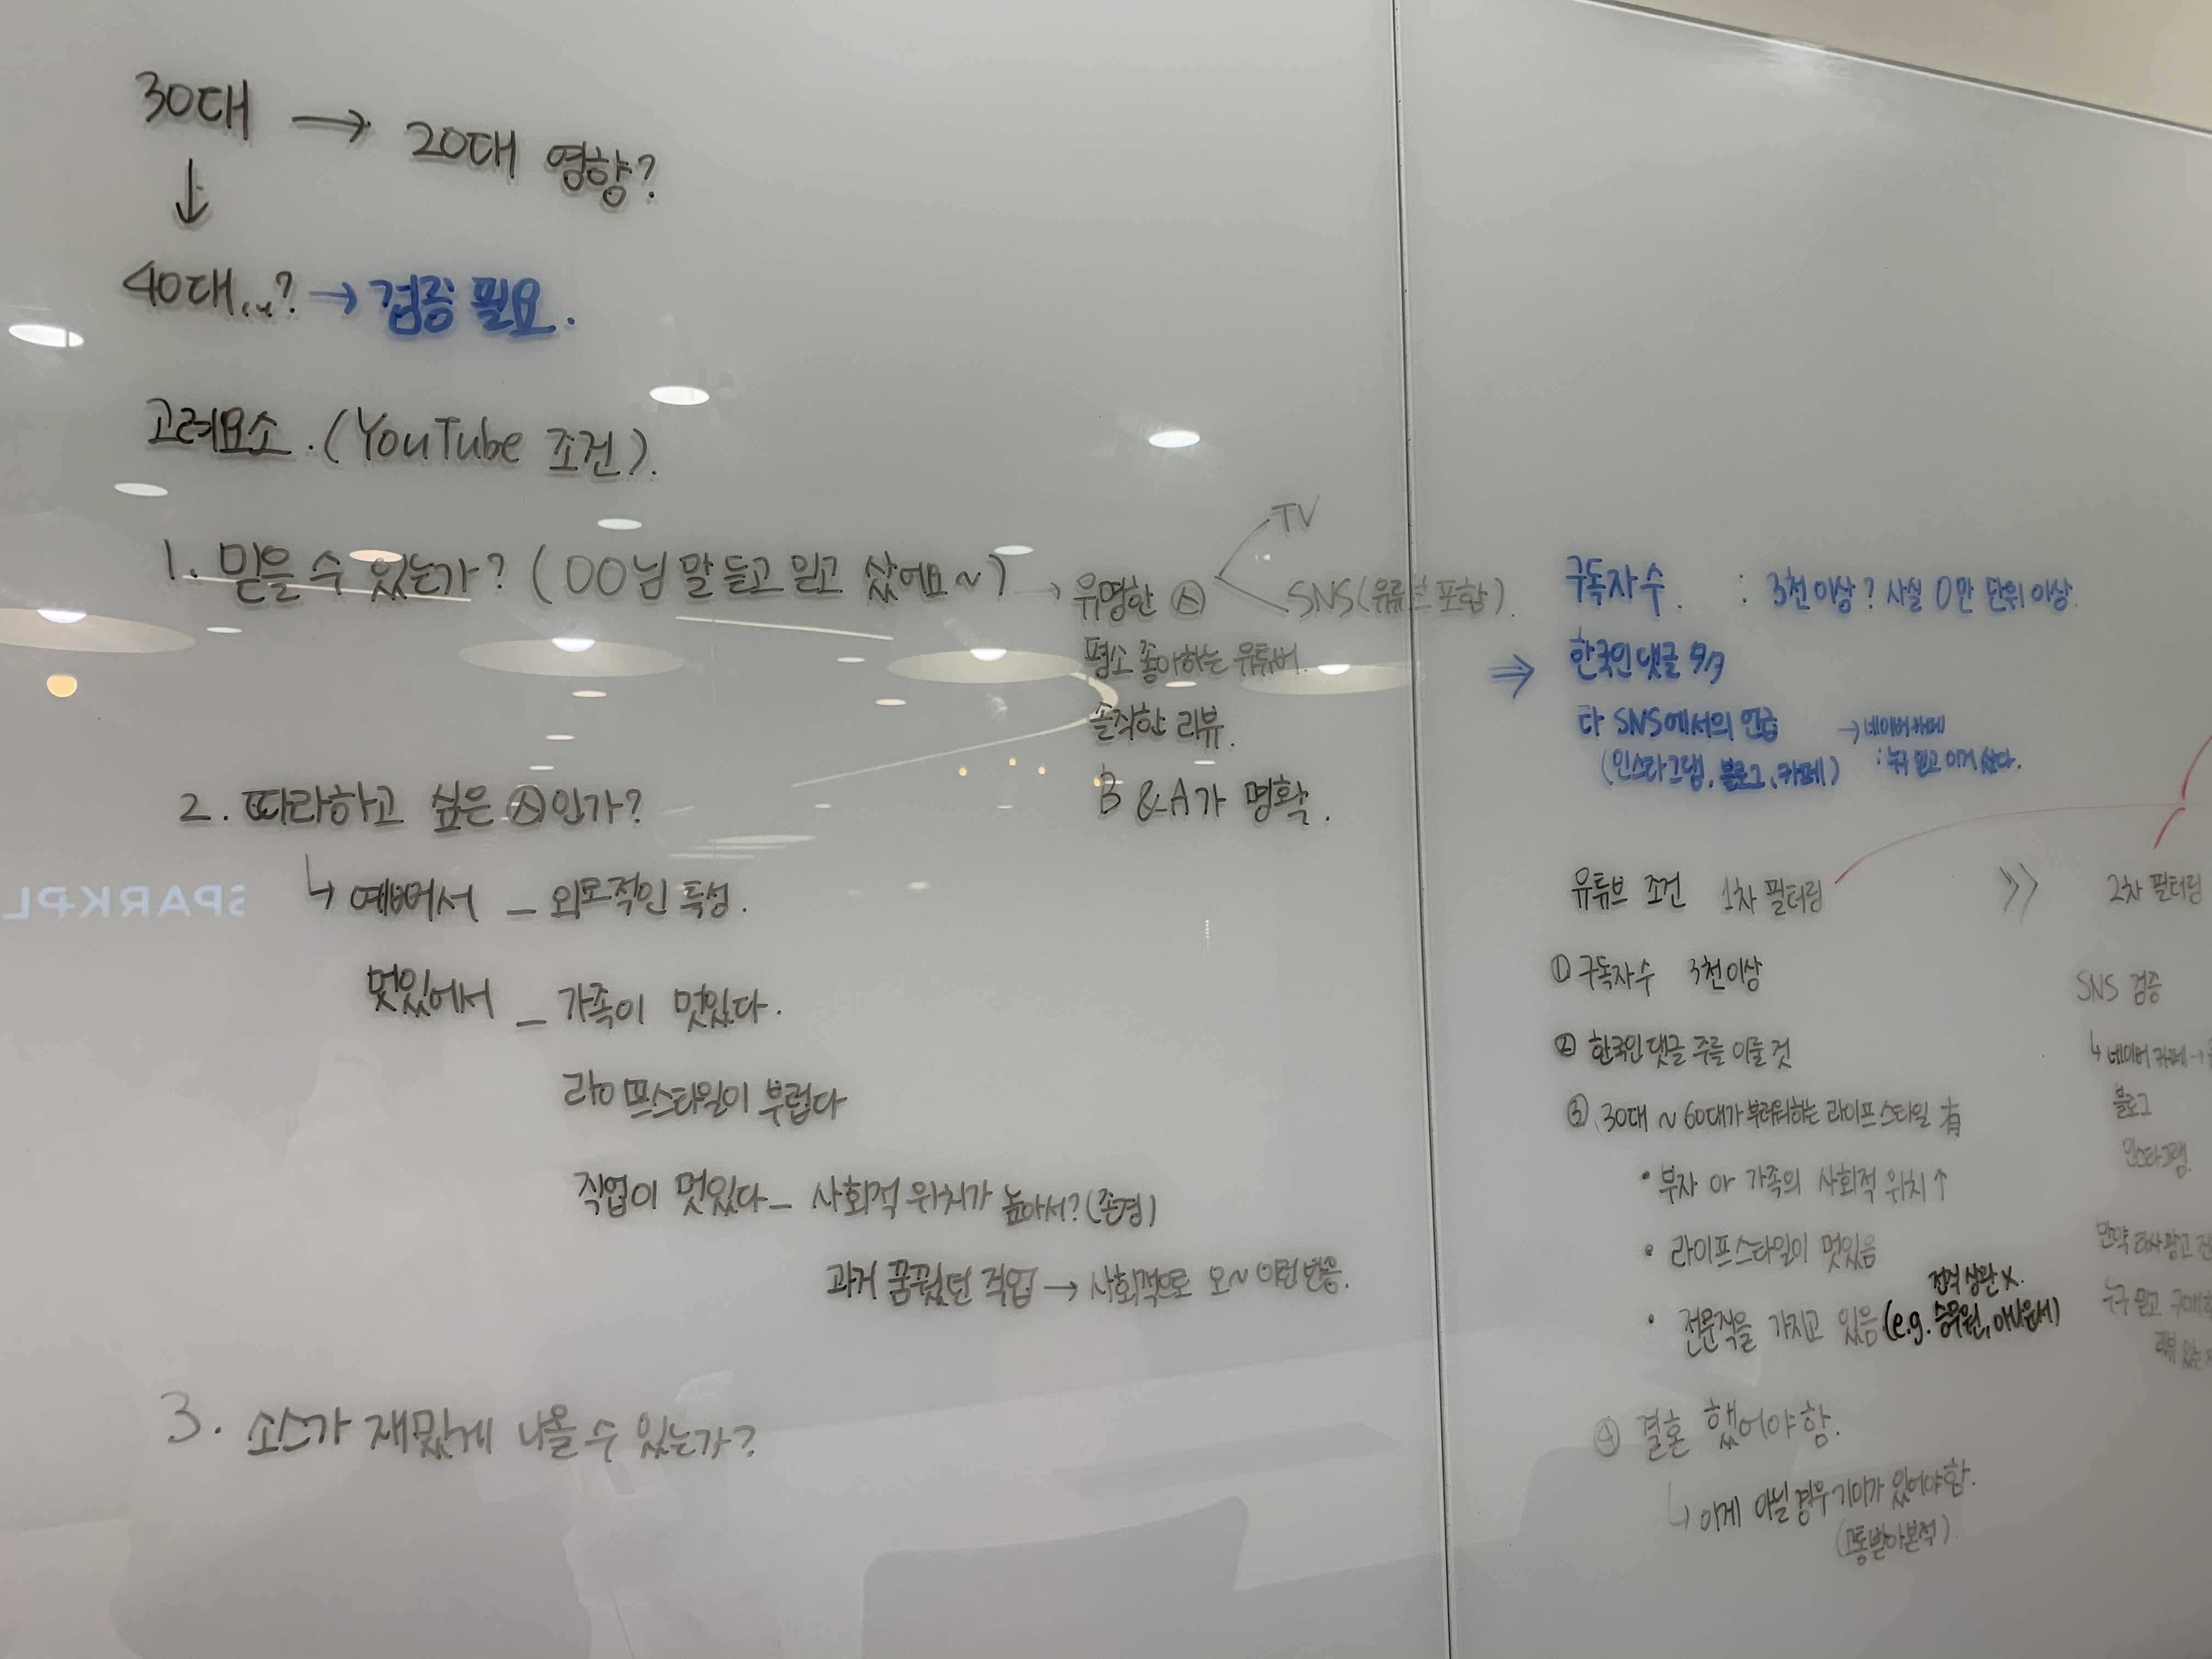 30대 → 20대 영향?
↓
40대...? → 검증 필요.
고려요소. (YouTube 조건).
1. 믿을 수 있는가? (OO님 말 듣고 믿고 샀어요~)
→ 유명한 ㉦
TV
SNS(유튜브 포함).
평소 좋아하는 유튜버.
솔직한 리뷰.
B & A가 명확.
⇒ 구독자 수 : 3천 이상? 사실 0만 단위 이상.
한국인 댓글
타 SNS에서의 언급 → 네이버 카페
(인스타그램, 블로그, 카페) : 누구 믿고 이거 샀다.
2. 따라하고 싶은 ㉦인가?
↳ 예뻐서 - 외모적인 특성.
멋있어서 - 가족이 멋있다.
라이프스타일이 부럽다
직업이 멋있다 - 사회적 위치가 높아서? (존경)
과거 꿈꿨던 직업 → 사회적으로 오~ 이런 반응.
3. 소스가 재밌게 나올 수 있는가?
유튜브 조건 1차 필터링 >> 2차 필터링
① 구독자수 3천 이상
② 한국인 댓글 주를 이룰 것
③ 30대 ~ 60대가 부러워하는 라이프 스타일 有
• 부자 or 가족의 사회적 위치 ↑
• 라이프스타일이 멋있음
전적 상관 X.
• 전문직을 가지고 있음 (e.g. 승무원, 아나운서)
④ 결혼 했어야 함.
↳ 이게 아닐 경우 기미가 있어야 함.
(고통받아본 적)
SNS 검증
↳ 네이버 카페 →
블로그
인스타그램
만약 타사 광고
누구 믿고
리뷰 있는
SPARKPL